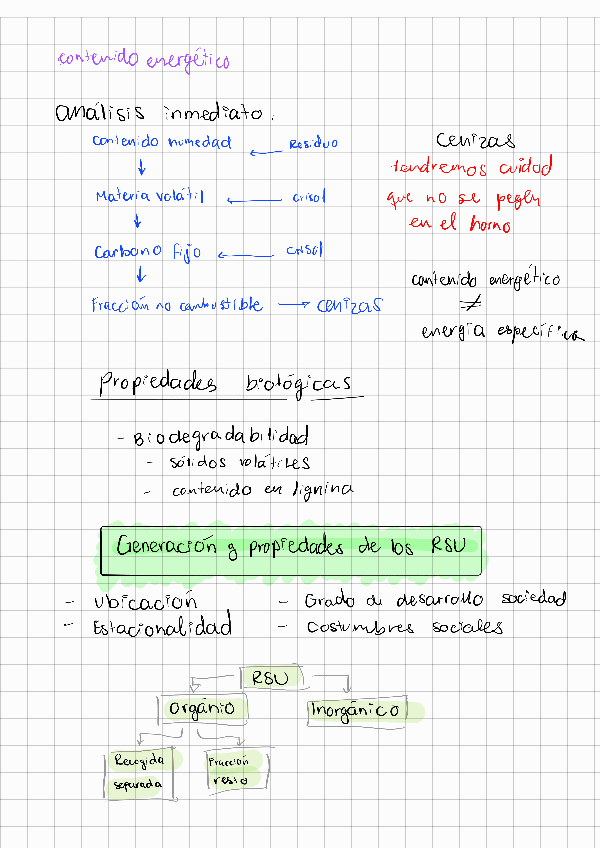 contenido energético
análisis inmediato.
contenido humedad ← Residuo
↓
Materia volátil ← crisol
↓
Carbono fijo ← crisol
↓
Fracción no combustible → cenizas
cenizas
tendremos cuidad
que no se peguen
en el horno
contenido energético
≠
energía específica
Propiedades biológicas
- Biodegradabilidad
- sólidos volátiles
- contenido en lignina
Generación y propiedades de los RSU
- Ubicación - Grado de desarrollo sociedad
- Estacionalidad - Costumbres sociales
RSU
orgánio Inorgánico
Recogida Fracción
separada resto